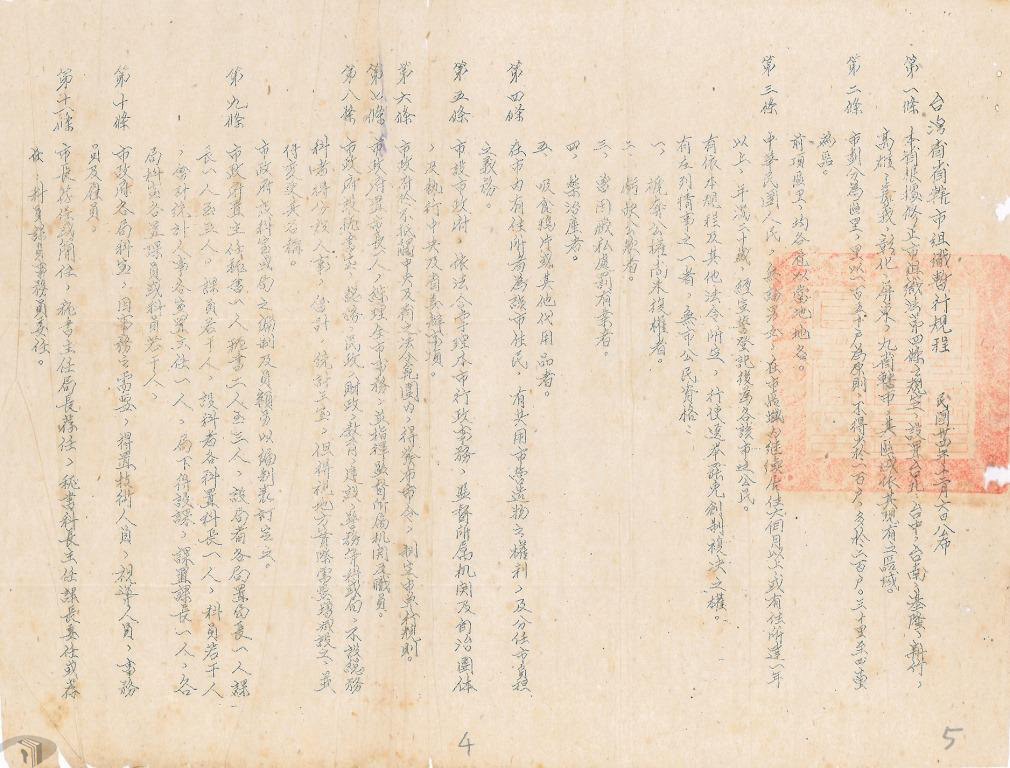 台灣省省轄市組織暫行規程 民國卅四年十二月六日公布
第一條 本省根據修正市組織法第四條之規定,設置台北、台中、台南、基隆、新竹、
高雄、嘉義、彰化、屏東、九省轄市,其區域依其現有之區域。
第二條 市劃分為區里,里以一百五十戶為原則,不得少於一百戶,多於二百戶。三十里至四十里
為區。
前項區里,均各冠以當地地名。
第三條 中華民國人民 無論男女,在市區域內繼續居住六個月以上或有住所達一年
以上,年滿二十歲,經宣誓登記後為各該市之公民。
有依本規程及其他法令所定,行使選舉罷免創制複決之權。
有左列情事之一者,無市公民資格:
一、褫奪公權尚未復權者。
二、虧欠公款者。
三、曾因贓私處罰有案者。
四、禁治產者。
五、吸食鴉片或其他代用品者。
第四條 在市內有住所者為該市住民,有共用市營造物之權利,及分任市負擔
之義務。
第五條 市設市政府,依法令掌理本市行政事務,監督所屬机関及自治團体
,及執行中央及省委辦事項。
第六條 市政府於不抵觸中央及省之法令範圍內,得發布市令,制定市單行規則。
第七條 市政府置市長一人,綜理全市事務,並指揮監督所屬机関及職員。
第八條 市政府設秘書室,總務,民政,財政,教育,建設,警務等科或局,不設總務
科者得分設人事,會計,統計三室,但得視地方實際需要增減設之,並
得變更其名稱。
市政府或科室或局之編制及員額另以編制表訂定之。
第九條 市政府置主任秘書一人秘書二人至三人,設局者各局置局長一人課
長一人至五人。課員若干人,設科者各科置科長一人,科員若干人
,會計統計人事各室置主任一人,局下得設課,課置課長一人,各
局科室各置課員或科員若干人。
第十條 市政府各局科室,因事務之需要,得置技術人員,視導人員,事務
員及僱員。
第十一條 市長荐任或簡任,秘書主任局長荐任,秘書科長主任課長委任或荐
任,科員課員事務員委任。
4
5